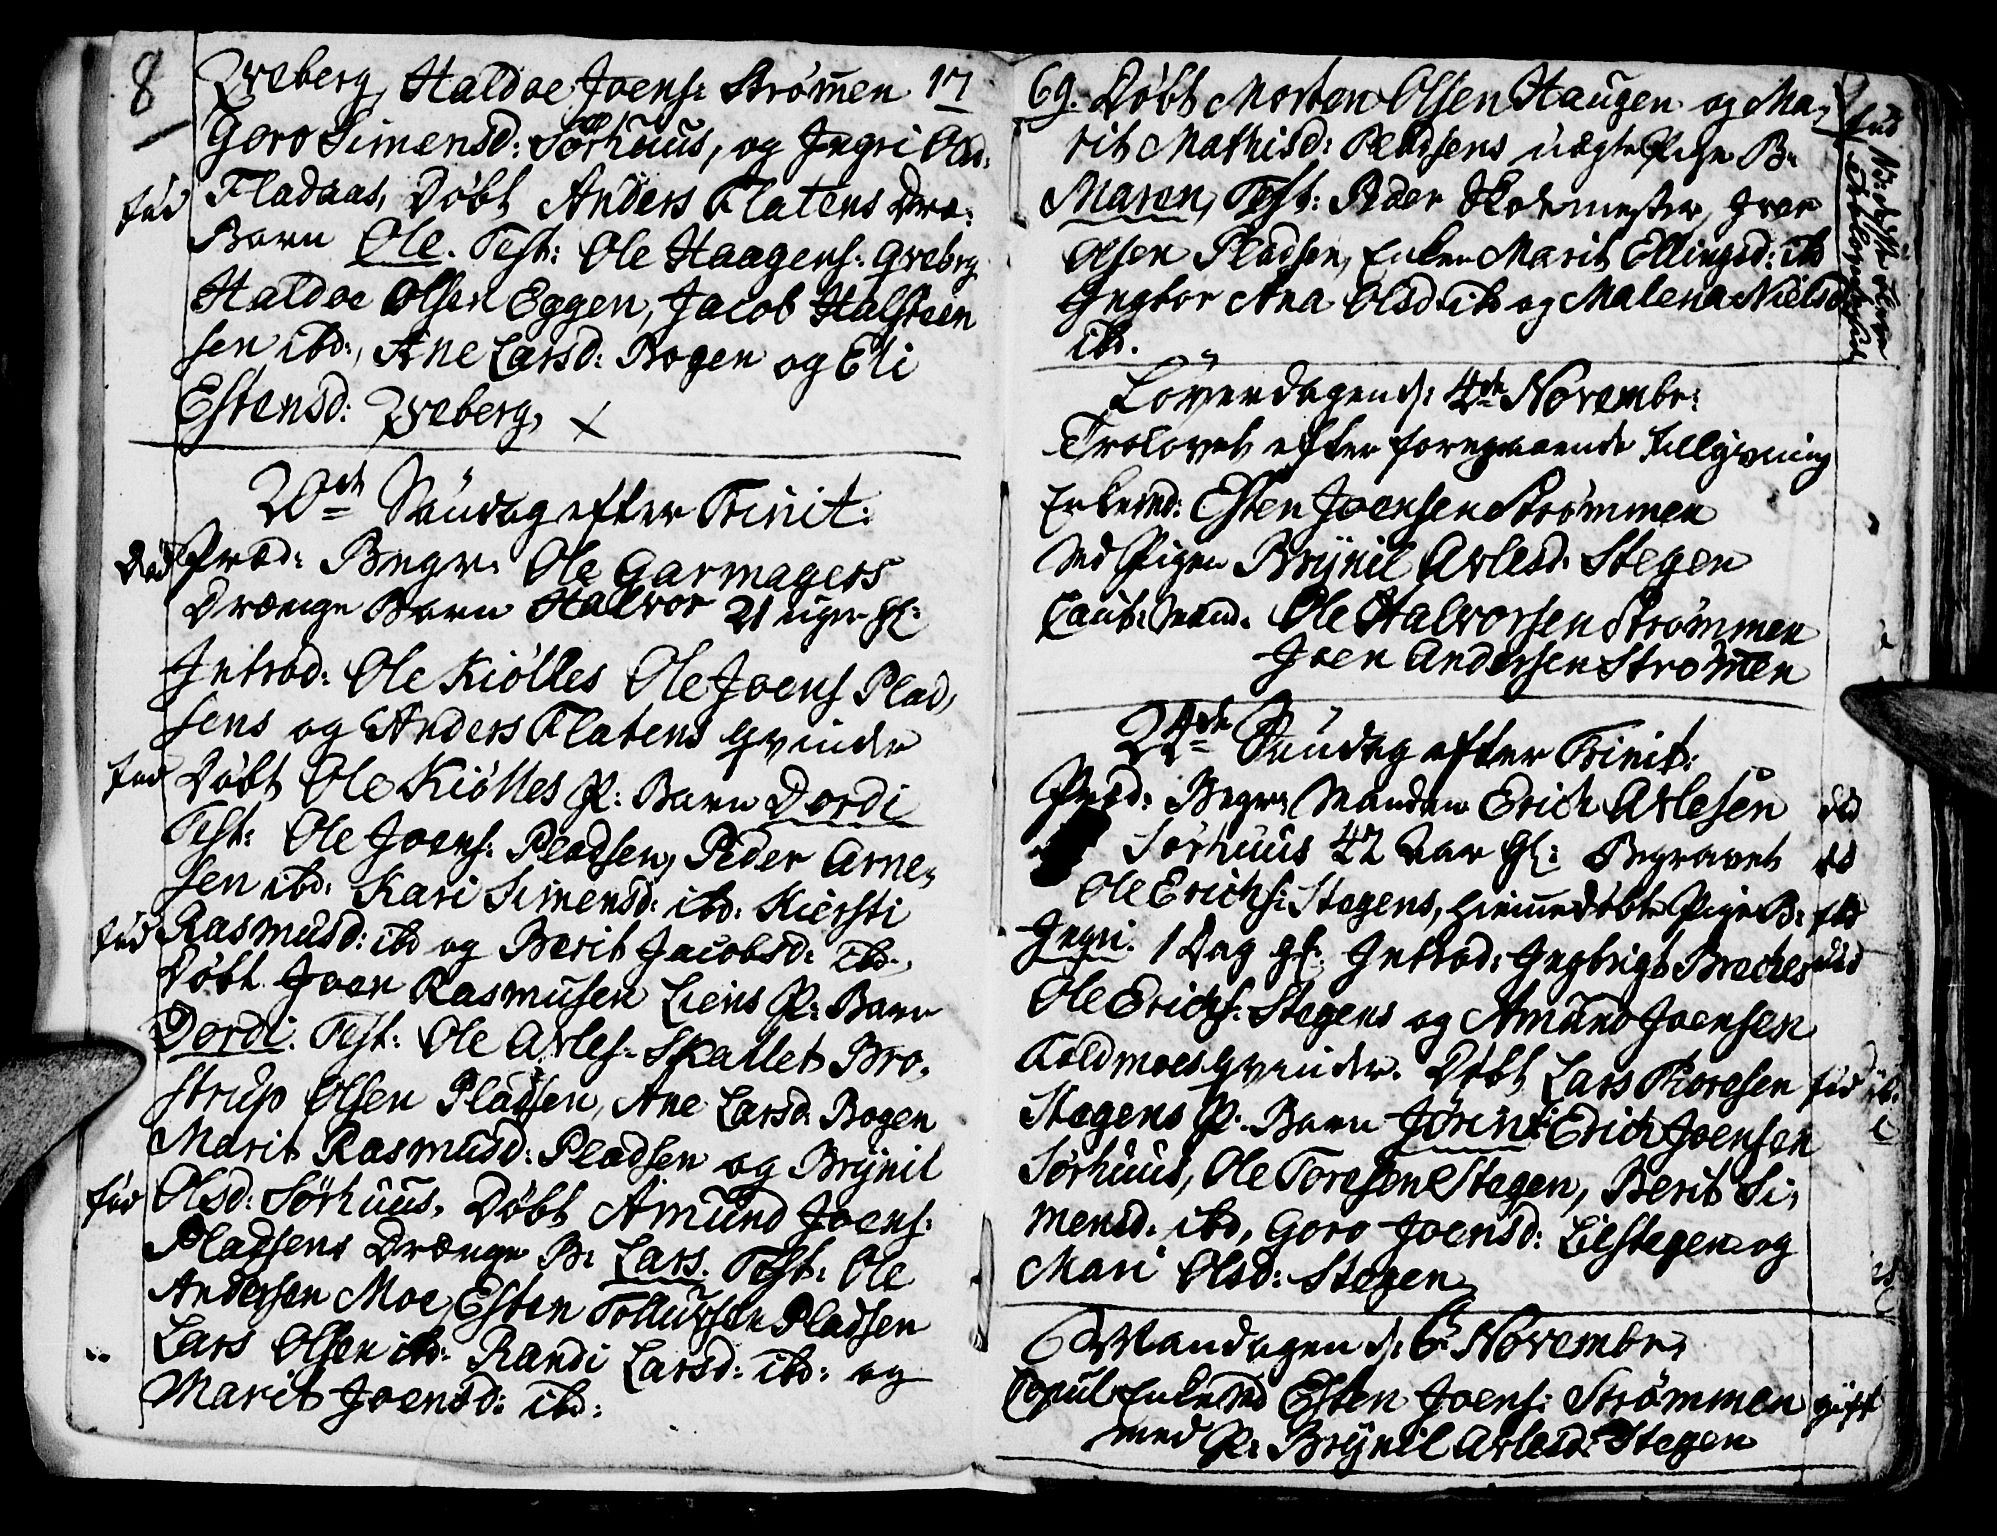 8
Qveberg, Haldoe Joens: Strømmen 17
Goro Simensd: Sørhuus, og Ingri Ols:
fød Fladaas, Døbt Anders Flatens Dre:
Barn Ole. Test: Ole Haagens: Qvebrg
Haldoe Olsen Eggen, Jacob Halsteen
sen ibd:, Ane Larsd: Bogen og Eli
Estensd: Qveberg,
20de Søndag efter Trinit:
Død Præd: Begr: Ole Garmagers
Drænge Barn Halvor 21 uger gl:
Introd: Ole Kiölles Ole Joens Plad,
sens og Anders Flatens Qvinder
fød Döbt Ole Kiölles P: Barn Dordi
Test: Ole Joens: Pladsen, Peder Arne,
sen ibd: Kari Simensd: ibd: Kiersti
fød Rasmusd: ibd og Berit Jacobsd: ibd,
Döbt Joen Rasmusen Liens P: Barn
Dordi. Test: Ole Arles: Skallet Bro,
strup Olsen Pladsen, Ane Larsd: Bogen
Marit Rasmusd: Pladsen og Brynil
fød Olsd: Sørhuus, Døbt Amund Joens:
Pladsens Drænge B: Lars. Test: Ole
Andersen Moe, Esten Tollufsen Pladsen
Lars Olsen ibd: Randi Larsd: ibd: og
Marit Joensd: ibd:
69. Döbt Morten Olsen Haugen og Ma,
rit Mathisd: Pladsens uægte Pige B:
Maren, Test: Peder Skolemester, Iver
Olsen Pladsen, Enken Marit Ellingsd: ibd
Ingbor Ana Olsd: ibd og Malena Nielsd
ibd.
fød
Löverdagen d: 4de Novembr:
Trolovet efter foregaaende tillysning
Enkemd: Esten Joensen Strømmen
Med Pigen Brynil Arlesd: Stegen
Caut: Mænd. Ole Halvorsen Strømmen
Joen Andersen Strømmen
24de Søndag efter Trinit:
Præd: Begr: Manden Erich Arlesen død
Sørhuus 42 Aar gl: Begravet
Ole Erichs: Stegens, hiemmedöbte Pige B:
Ingri. 1 Dag gl: Introd: Ingbrigt Breches
Ole Erichs: Stegens og Amund Joensen
Qvinder. Döbt Lars Toresen fød
Stegens P: Barn Jörin Erich Joensen
Sørhuus, Ole Toresen Stegen, Berit Si,
mensd: ibd, Goro Joensd: Lilstegen og
Mari Olsd: Stegen
Mandagen d: 6te Novembr,
Copul: Enkemd Esten Joens: Strømmen gift
med P: Brynil Arlesd: Stegen